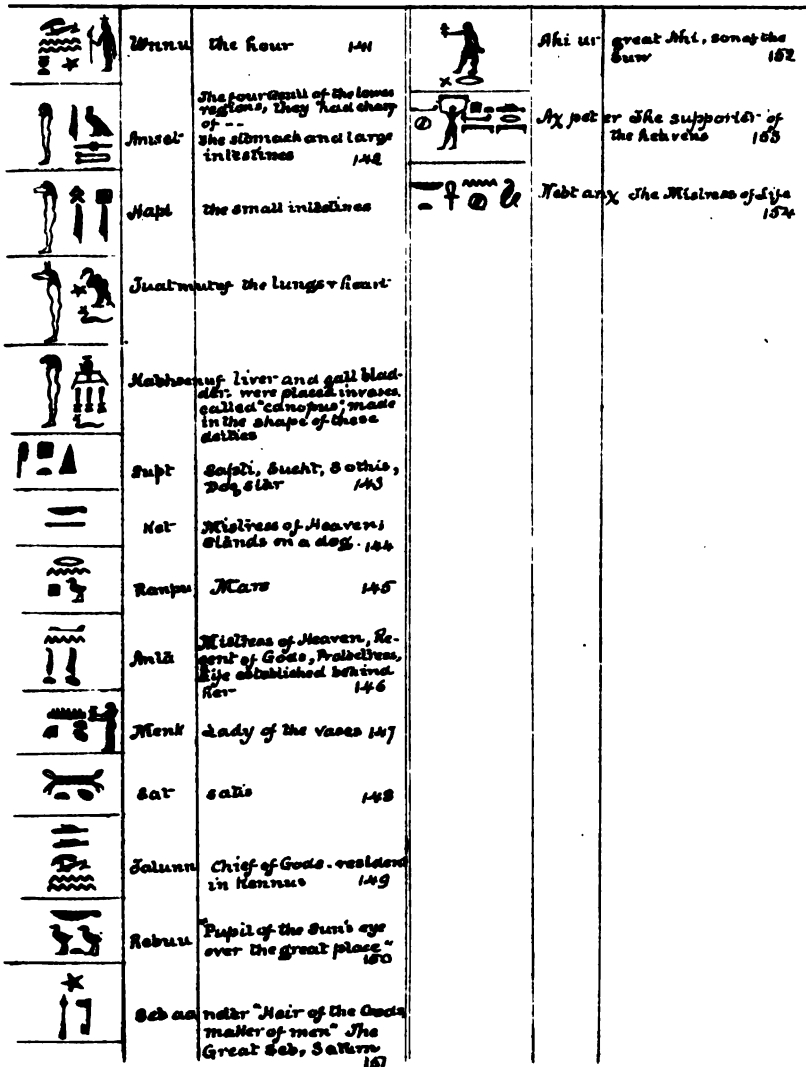 Unnu the hour 141
The four
regions, they had charg
of --
Amset the stomach and large
intestines 142
Hapi the small intestines
Tuatmutef the lungs & heart
Kabhsenuf liver and gall blad-
der. were placed in vases
called "canopus", made
in the shape of these
deities
Supt Sapti, Sucht, Sothis,
Dog star 143
Ket Mistress of Heaven,
stands on a dog. 144
Ranpu Mars 145
Anta Mistress of Heaven, Re-
gent of Gods, Protectress,
Life established behind
her 146
Menk Lady of the vases 147
Sat satis 148
Chief of Gods - resident
in Kennus 149
Rebuu "Pupil of the Sun's eye
over the great place"
150
Seb aa neter "Heir of the Gods,
matter of men" The
Great Seb, Saturn
151
Ahi ur great Ahi, son of the
Sun 152
Ax pet er The supporter of
the heavens 153
Nebt anx The Mistress of Life
154